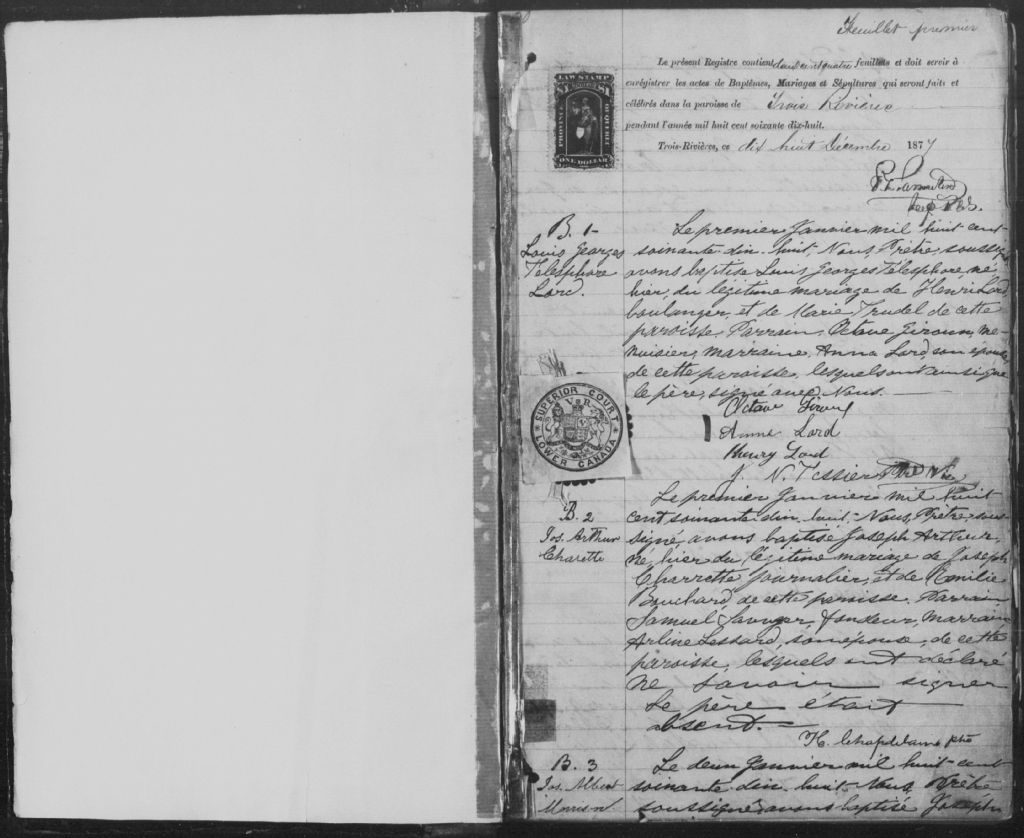 Feuillet premier
Le présent Registre contient deux cent quatre feuillets et doit servir à
enrégistrer les actes de Baptêmes, Mariages et Sépultures qui seront faits et
célébrés dans la paroisse de Trois Rivières
pendant l'année mil huit cent soixante dix-huit.
Trois-Rivières, ce dix huit Décembre 1877
LAW STAMP
PROVINCE OF QUEBEC
ONE DOLLAR
B. 1
Louis Georges
Télesphore
Lord.
Le premier Janvier mil huit cent
soixante dix huit, Nous, Prêtre, soussigné
avons baptisé Louis Georges Télesphore, né
hier, du légitime mariage de Henri Lord,
boulanger, et de Marie Trudel de cette
paroisse. Parrain, Octave Giroux, me
nuisier, marraine, Anna Lord, son épouse,
de cette paroisse, lesquels ont signé
le père, signé avec Nous.
Octave Giroux
Anna Lord
Henry Lord
J. N. Tessier Ptre
SUPERIOR COURT
V R
LOWER CANADA
B. 2
Jos. Arthur
Charette
Le premier Janvier mil huit
cent soixante dix huit, Nous, Prêtre, sous-
signé, avons baptisé Joseph Arthur,
né, hier du légitime mariage de Joseph
Charrette journalier, et de Emilie
Bouchard, de cette paroisse. Parrain
Samuel fondeur, marraine
Arline Lessard, son épouse, de cette
paroisse, lesquels ont déclaré
ne savoir signer
Le père était
absent.
H. Chapdelaine ptre
B. 3
Jos. Albert
Le deux Janvier mil huit cent
soixante dix huit Nous Prêtre
soussigné avons baptisé Joseph